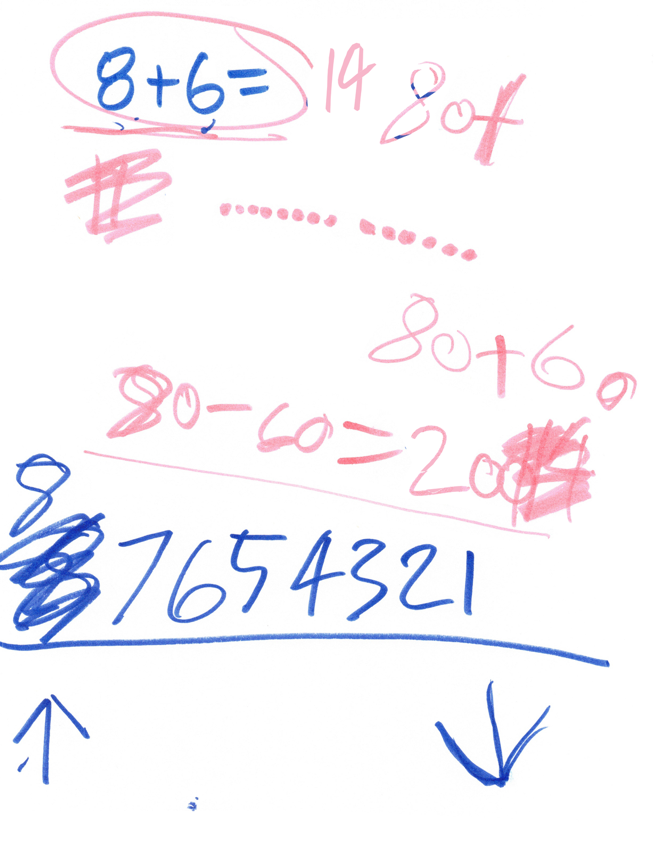 8+6= 14 80+
80+60
80-60=20
8
7654321